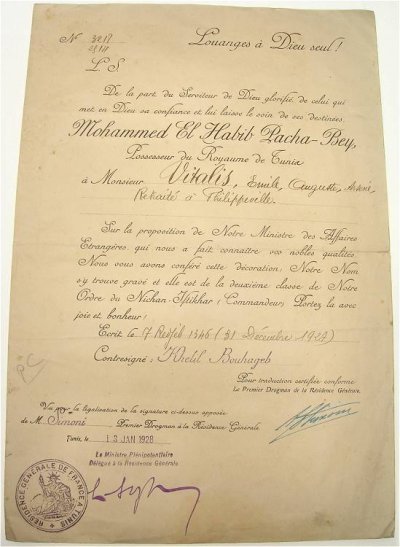 Louanges à Dieu seul!
N° 3218
L S
De la part du Serviteur de Dieu glorifié, de celui qui
met en Dieu sa confiance et lui laisse le soin de ses destinées.
Mohammed El Habib Pacha-Bey,
Possesseur du Royaume de Tunis
à Monsieur Vitalis, Emile, Auguste,
Retraité à Philippeville
Sur la proposition de Notre Ministre des Affaires
Etrangères qui nous a fait connaître vos nobles qualités
Nous vous avons conféré cette décoration. Notre Nom
s'y trouve gravé et elle est de la deuxième classe de Notre
Ordre du Nichan Iftikhar (Commandeur) Portez la avec
joie et bonheur!
Ecrit le 7 Redjeb 1346 (31 Décembre 1927)
Contresigné: Khelil Bouhageb
Pour traduction certifiée conforme
Le Premier Drogman de la Résidence Générale.
Vu pour la légalisation de la signature ci-dessus apposée
de M. Simoni Premier Drogman à la Résidence Générale.
Tunis, le 13 JAN 1928
Le Ministre Plénipotentiaire
Délégué à la Résidence Générale
RÉSIDENCE GÉNÉRALE DE FRANCE A TUNIS